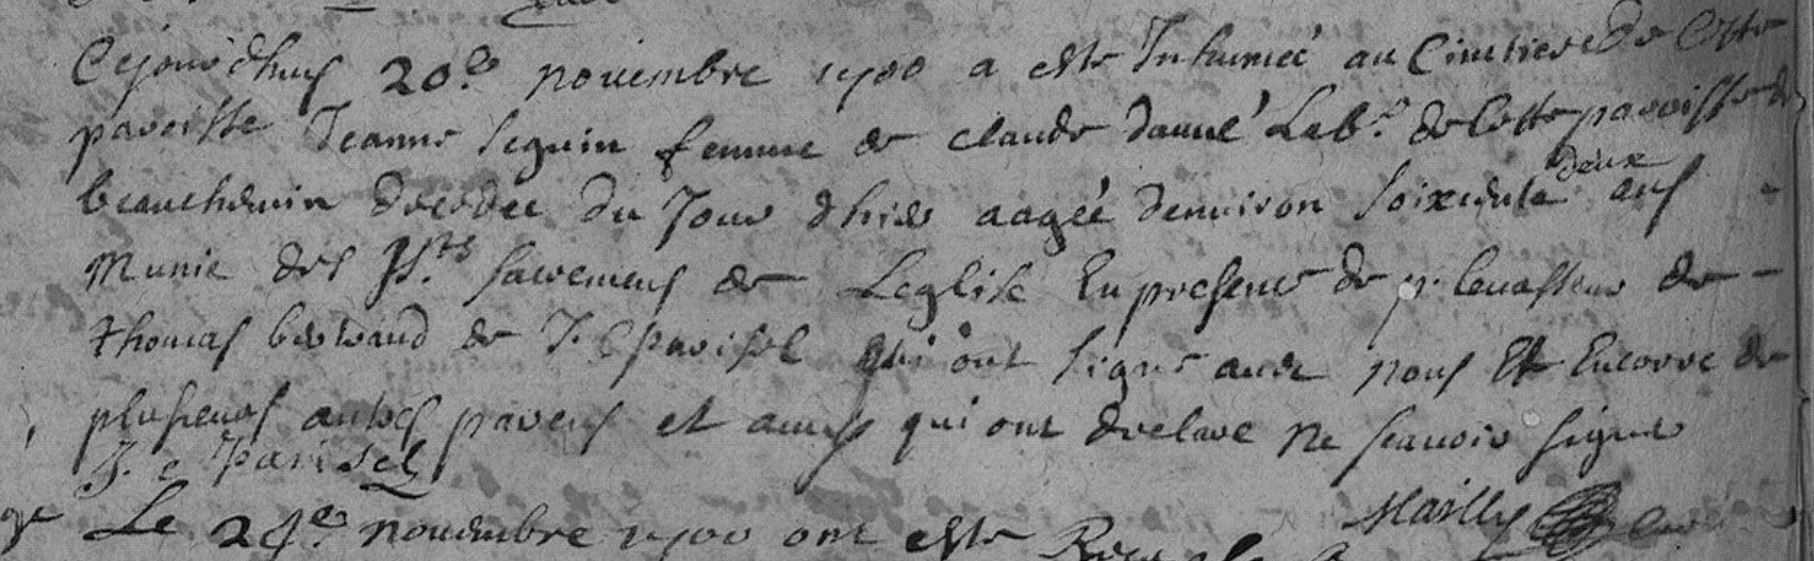 Cejourdhuy 20e novembre 1700 a este Inhumée au Cimetiere De Cette
paroisse Jeanne Seguin femme de claude Danné Labr. de Cette paroisse de
beauchemin decedée du Jour dhier aagée denviron soixente deux ans
Munie des Sts sacremens de Leglise En presence de p. levasseur de
thomas bertrand de J. C parisel qui ont signé avec nous Et Encorre de
plusieurs autres parens et amys qui ont declaré ne scavoir signer
J. C Parisel
Mailly
Le 24e novembre 1700 ont este